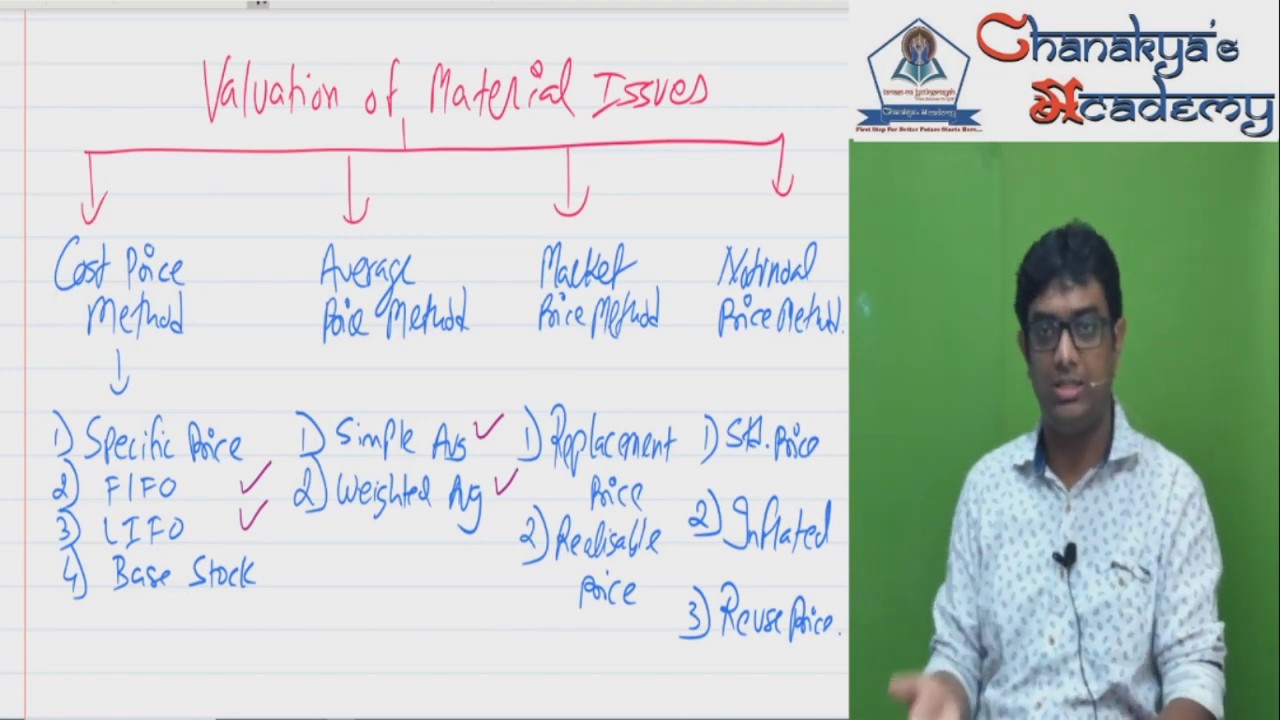 Valuation of Material Issues
Cost Price
Method
1) Specific Price
2) FIFO
3) LIFO
4) Base Stock
Average
Price Method
1) Simple Avg
2) Weighted Avg
Market
Price Method
1) Replacement
Price
2) Realisable
Price
Notional
Price Method.
1) Std. Price
2) Inflated
3) Reuse Price.
Chanakya's
Academy
Chanakya's Academy
First Step For Better Future Starts Here...